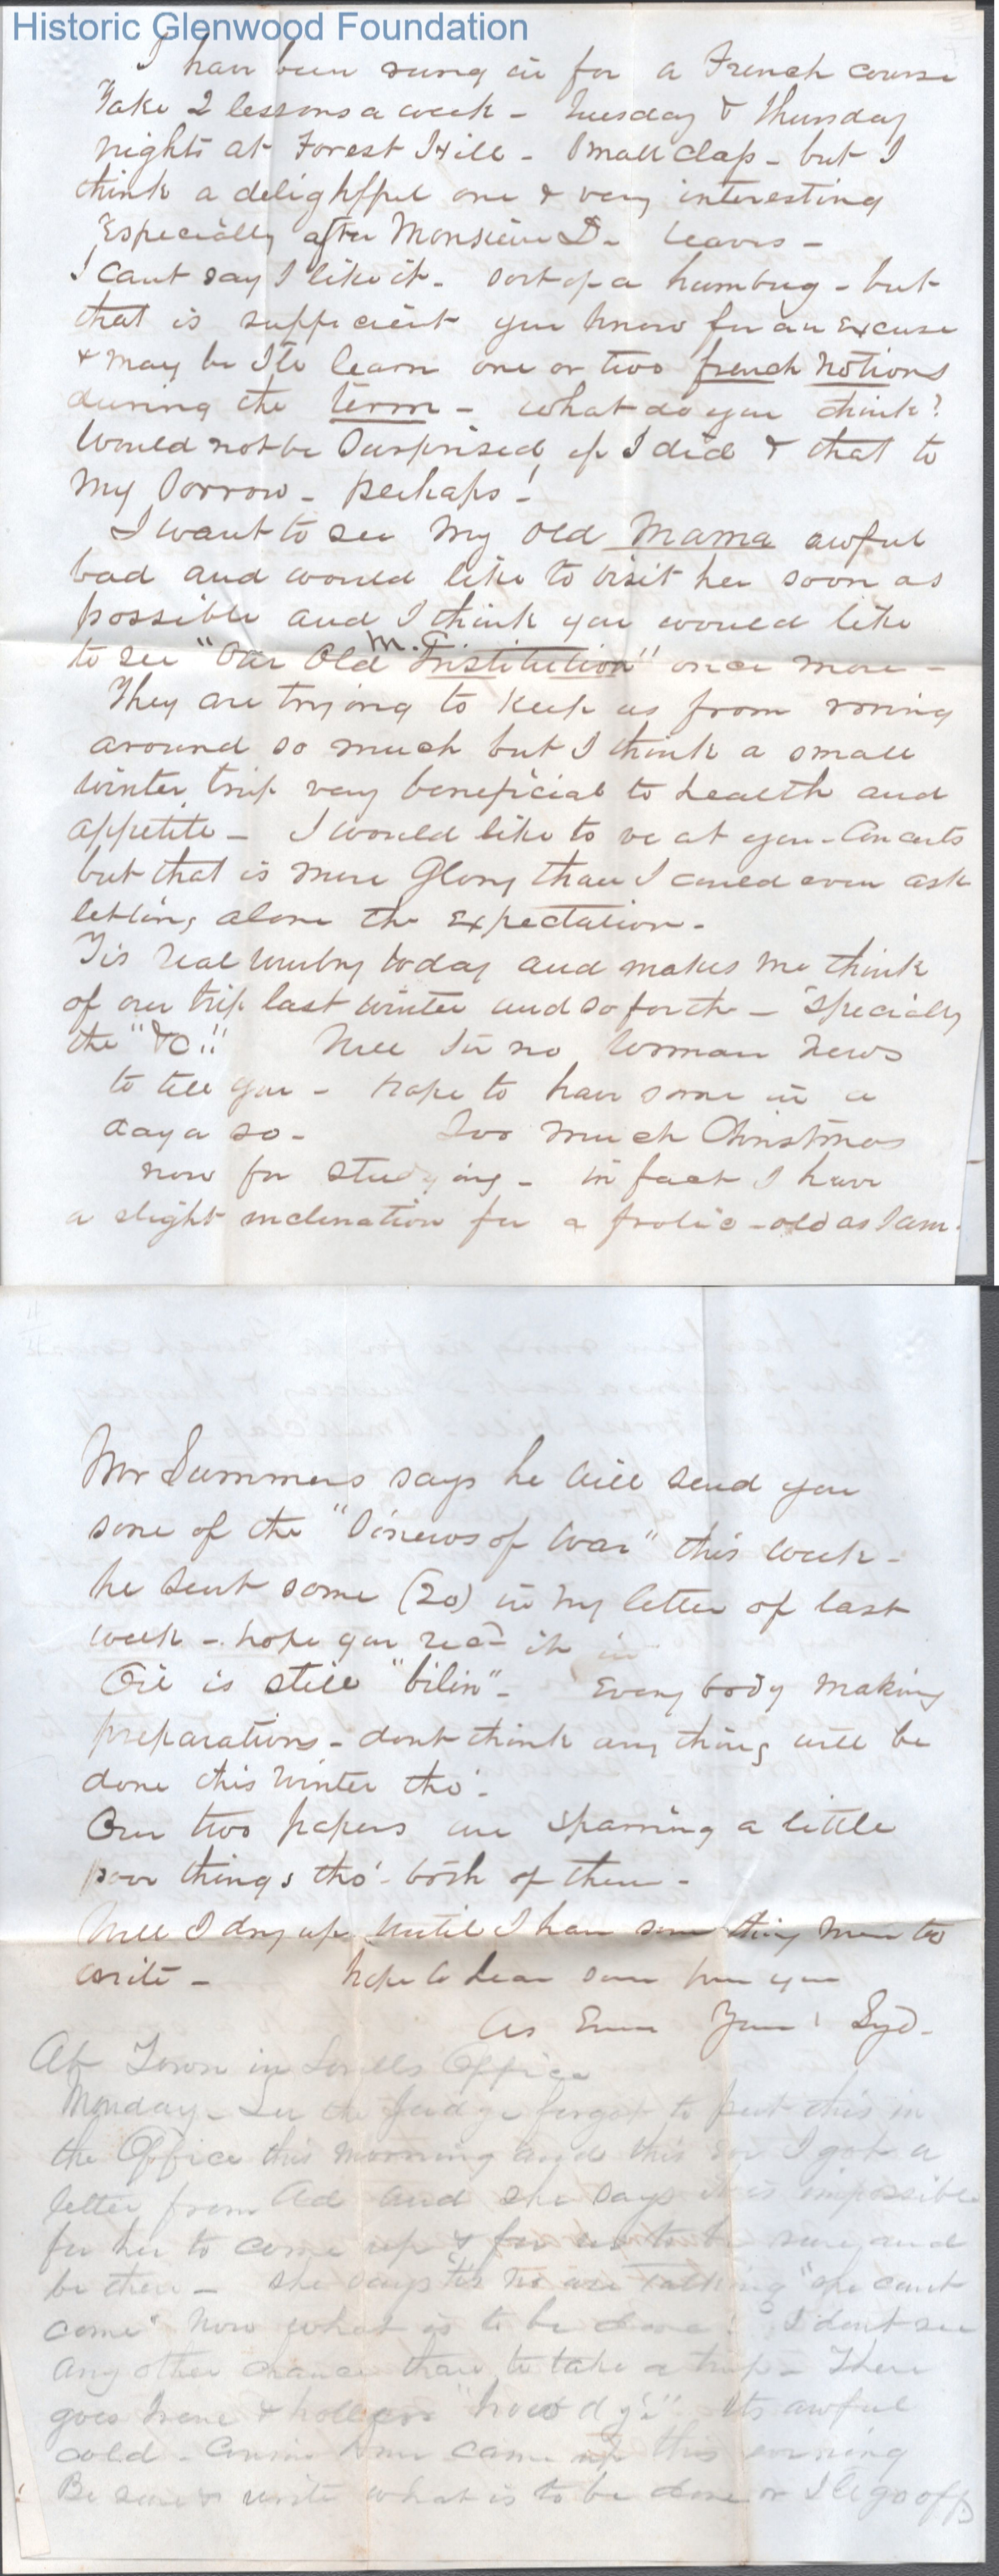 Historic Glenwood Foundation
I have been rung in for a French course
Take 2 lessons a week - Tuesday & Thursday
nights at Forest Hill - Small class - but I
think a delightful one & very interesting
Especially after Monsieur D. leaves -
I cant say I like it - sort of a humbug - but
that is sufficient you know for an excuse
& may be Ile learn one or two french notions
during the term - what do you think?
Would not be Surprised if I did & that to
my sorrow - perhaps!
I want to see my old Mama awful
bad and would like to visit her soon as
possible and I think you would like
to see "Our Old M. Institution" once more -
They are trying to keep us from roving
around so much but I think a small
winter trip very beneficial to health and
appetite - I would like to be at your Concerts
but that is more Glory than I could even ask
letting alone the expectation -
Tis real wintry today and makes me think
of our trip last winter and so forth - 'specially
the "&C"! Well I've no woman news
to tell you - hope to have some in a
day or so - Too much Christmas
now for studying - in fact I have
a slight inclination for a frolic - old as I am -
Mr Summers says he will send you
some of the "Sinews of War" this week -
he sent some (20) in my letter of last
week - hope you recd it
Oil is still "bilin" - Every body making
preparations - dont think any thing will be
done this winter tho'.
Our two papers are sparring a little
poor things tho' - both of them -
Well I dry up until I have some thing more to
write - hope to hear soon from you
As Ever Your Syd -
At Town in Lovells Office
Monday - the Judge forgot to put this in
the Office this morning and this I got a
letter from Ad and she says it is impossible
for her to come up & for us to be sure and
be there - she says "tis no use talking" she cant
come" Now what is to be done? I dont see
any other chance than to take a trip - There
goes Irene & hollers "howdy" Its awful
cold - Cousin came up this evening
Be sure & write what is to be done or Ile go off